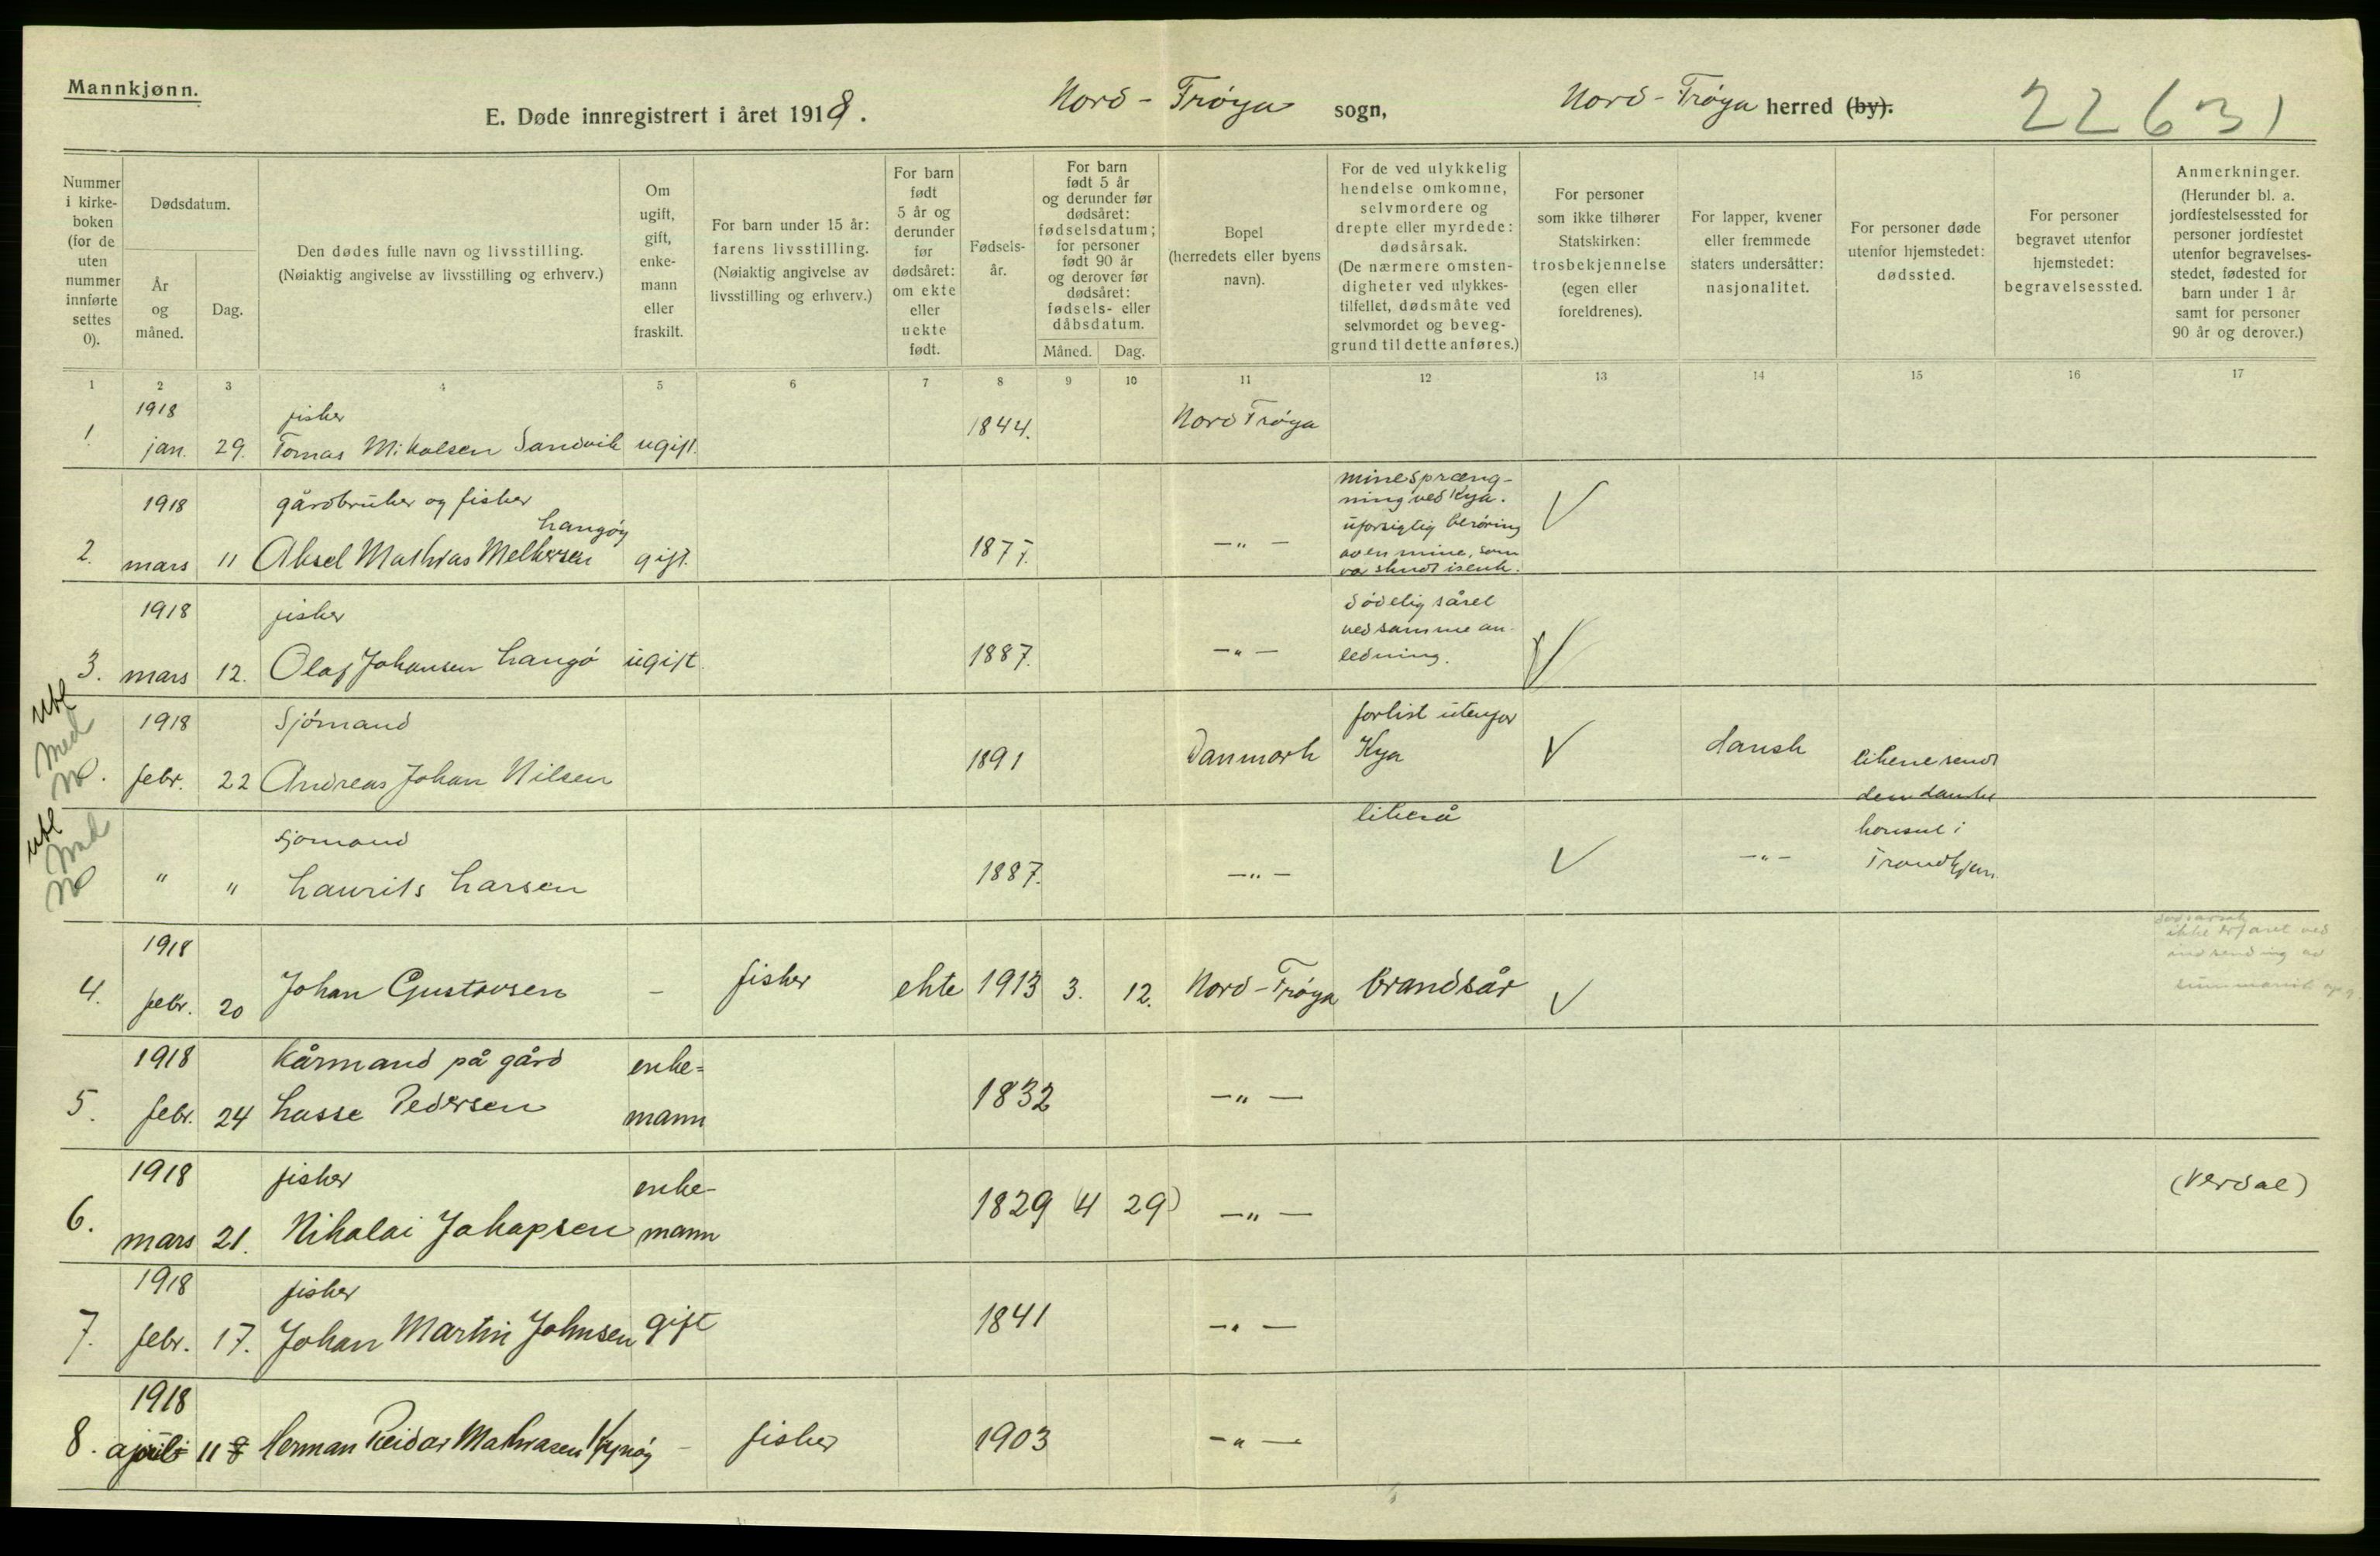 Mannkjønn.
E. Døde innregistrert i året 1918. Nord-Frøya sogn, Nord-Frøya herred (by). 22631
Nummer i kirke-boken (for de uten nummer innførte settes 0).
Dødsdatum.
År og måned.
Dag.
Den dødes fulle navn og livsstilling.
(Nøiaktig angivelse av livsstilling og erhverv.)
Om ugift, gift, enke-mann eller fraskilt.
For barn under 15 år: farens livsstilling.
(Nøiaktig angivelse av livsstilling og erhverv.)
For barn født 5 år og derunder før dødsåret: om ekte eller uekte født.
Fødsels-år.
For barn født 5 år og derunder før dødsåret: fødselsdatum; for personer født 90 år og derover før dødsåret: fødsels- eller dåbsdatum.
Måned. Dag.
Bopel (herredets eller byens navn).
For de ved ulykkelig hendelse omkomne, selvmordere og drepte eller myrdede: dødsårsak.
(De nærmere omsten-digheter ved ulykkes-tilfellet, dødsmåte ved selvmordet og beveg-grund til dette anføres.)
For personer som ikke tilhører Statskirken: trosbekjennelse (egen eller foreldrenes).
For lapper, kvener eller fremmede staters undersåtter: nasjonalitet.
For personer døde utenfor hjemstedet: dødssted.
For personer begravet utenfor hjemstedet: begravelsessted.
Anmerkninger.
(Herunder bl. a. jordfestelsessted for personer jordfestet utenfor begravelses-stedet, fødested for barn under 1 år samt for personer 90 år og derover.)
1 2 3 4 5 6 7 8 9 10 11 12 13 14 15 16 17
1918 fisker
1. jan. 29. Tomas Mikalsen Sandvik ugift. 1844. Nord Frøya
1918 gårdbruker og fisker
Langøy
2. mars 11 Aksel Mathias Melkersen gift. 1877. —"—
minespræng-
ning ved Kya.
uforsigtig berøring
av en mine, som
var skudt isenk.
1918 fisker
3. mars 12. Olaf Johansen Langø ugift. 1887. —"—
dødelig såret
ved samme an-
ledning.
utl
Med
No.
1918 Sjømand
febr. 22 Andreas Johan Nilsen 1891 Danmark
forlist utenfor
Kya
dansk
likene sendt
den danske
utl
Med
No
sjømand
" " Laurits Larsen 1887. —"—
likeså
—"—
konsul i
Trondhjem.
1918
4. febr. 20 Johan Gustavsen — fisker ekte 1913 3. 12. Nord-Frøya brandsår
dødsårsak
ikke erfaret ved
indsending av
1918 Kårmand på gård enke-
5. febr. 24 Lasse Pedersen mann 1832 —"—
1918 fisker enke-
6. mars 21. Nikolai Jakopsen mann 1829 (4 29) —"— (Verdal)
1918 fisker
7. febr. 17. Johan Martin Johnsen gift 1841 —"—
1918
8. april 11 Herman Reidar Mathiasen Kynøy — fisker 1903 —"—